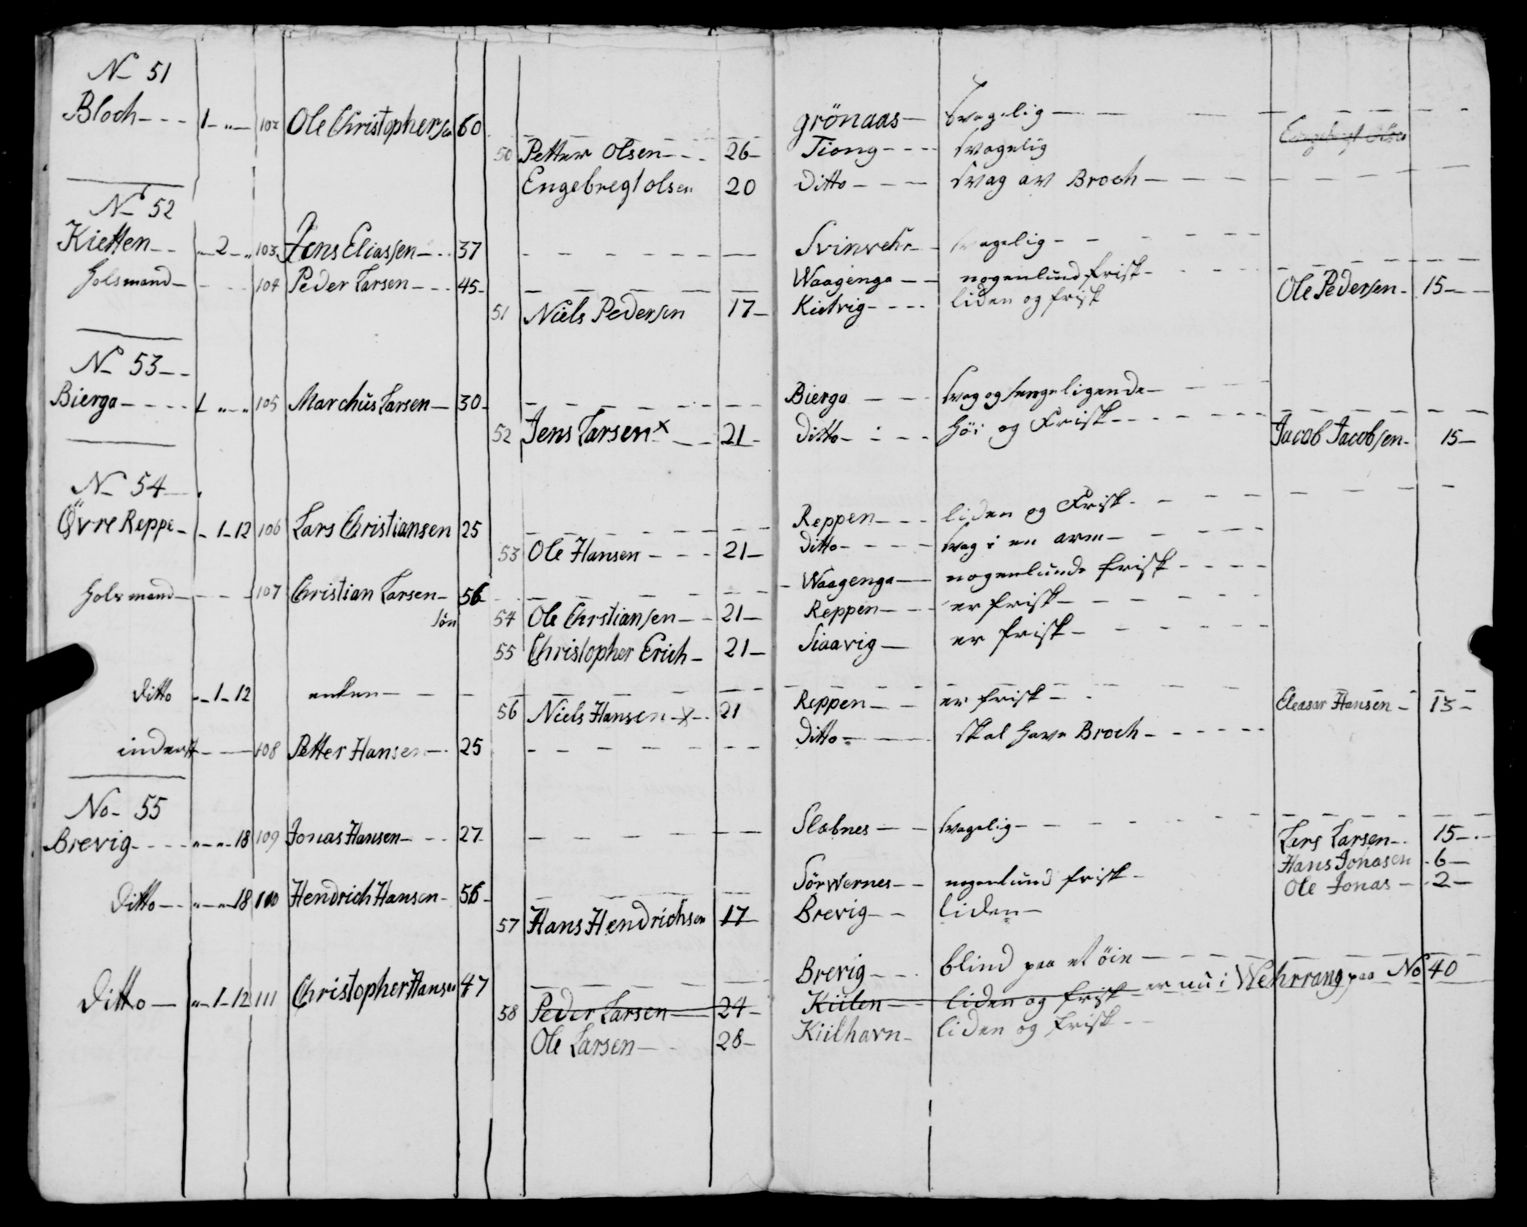 No 51
Bloch - - - 1 - " - 102 Ole Christophersen 60 Grönaas - Svagelig
50 Petter Olsen - - - 26 - Tiong - - - - svagelig
Engebregt olsen 20 Ditto - - - - svag av Broch
No 52
Kietten - - " - 2 - " 103 Jens Eliassen - - 37 Svinvehr - - svagelig
Holsmand - - - - 104 Peder Larsen - - - 45 - Waagenga - - nogenlund frisk - Ole Pedersen - 15 -
51 Niels Pedersen 17 - Kielvig - - - - liden og frisk
No 53 - -
Bierga - - - - 1 " - " 105 Marchus Larsen - 30 - Bierga - - - svag og sengeligende -
52 Jens Larsen x - - 21 - Ditto - - - - Höi og Frisk - - - Jacob Jacobsen - 15 -
No 54
Övre Reppe - - 1 - 12 106 Lars Christiansen 25 Reppen - - - liden og Frisk
53 Ole Hansen - - - 21 - Ditto - - - - svag i en arm -
Holsmand - - - - 107 Christian Larsen - 56 - Waagenga - nogenlunde frisk - - - -
søn 54 Ole Chrstiansen - - 21 - Reppen - - - er frisk -
55 Christopher Erich - 21 - Siaavig - er frisk -
Ditto " - 1 - 12 enken - - - Reppen - - er frisk - Eleasar Hansen - 13 -
56 Niels Hansen - x - 21 Ditto - skal have Broch
inderst - - 108 Petter Hansen - 25
No - 55
Brevig - - - - " - " - 18 109 Jonas Hansen - - - 27 Slabnes - - svagelig - Lars Larsen - 15 -
Hans Jonasen - 6 -
Ditto - - " - " - 18 110 Hendrich Hansen - 56 - Sörwernes - - nogenlund frisk - Ole Jonas - 2 -
57 Hans Hendrichsen 17 Brevig - - liden -
Ditto - " - 1 - 12 111 Christopher Hansen 47 Brevig - - - blind paa et öie
58 Peder Larsen 24 - Kiilen liden og frisk er nu i Wehrrang paa No 40
Ole Larsen - - 28 - Kiilhavn - liden og frisk - -